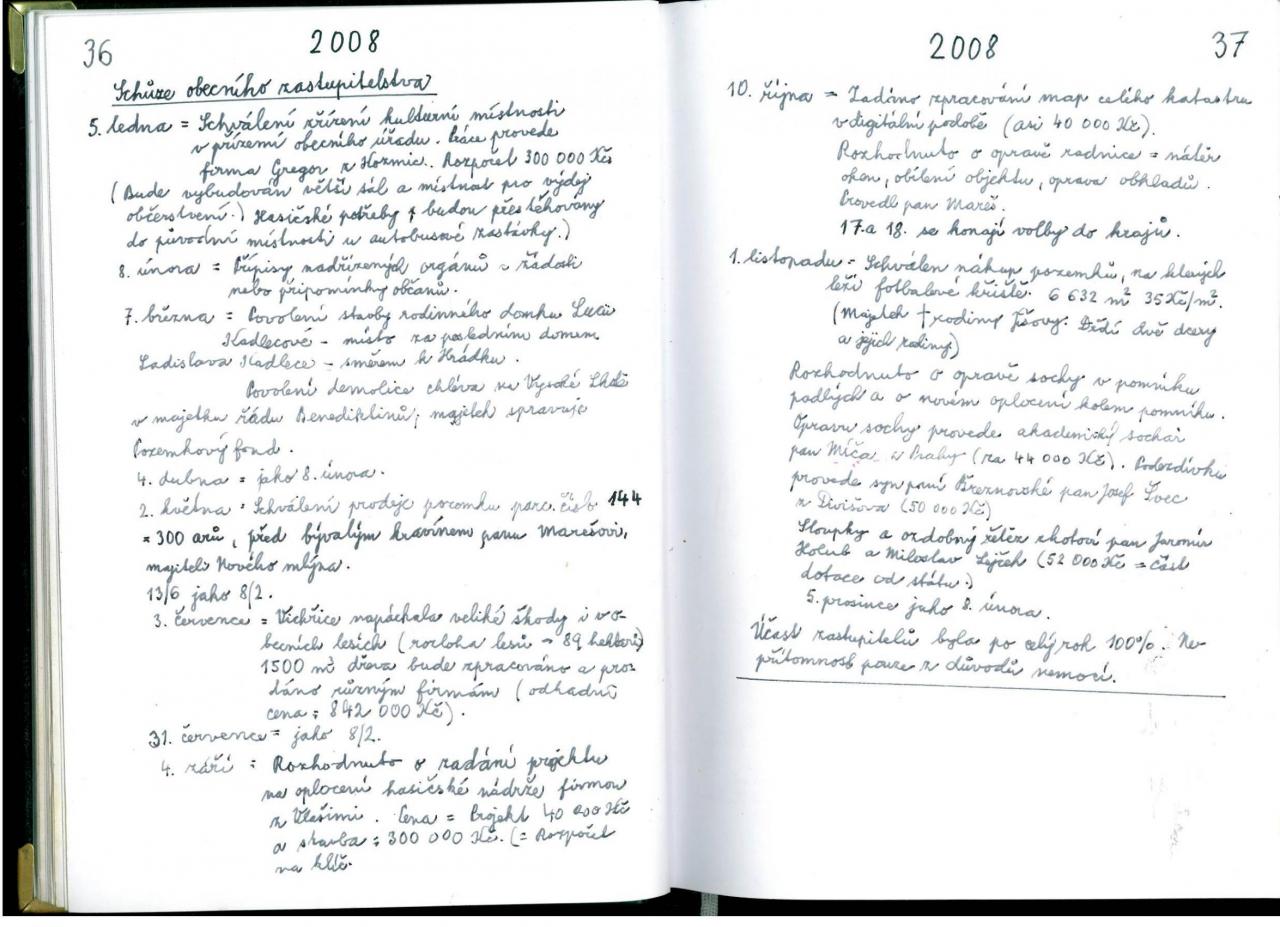 36
2008
Schůze obecního zastupitelstva
5. ledna = Schválení zřízení kulturní místnosti
v přízemí obecního úřadu. Práce provede
firma Gregor z Hozmic. Rozpočet 300 000 Kč
(Bude vybudován větší sál a místnost pro výdej
občerstvení.) Hasičské potřeby budou přestěhovány
do původní místnosti u autobusové zastávky.)
8. února = Přípisy nadřízených orgánů - žádosti
nebo připomínky občanů.
7. března = Povolení stavby rodinného domku Lucii
Kadlecové - místo za posledním domem
Ladislava Kadlece - směrem k Hrádku.
Povolení demolice chléva na Vysoké Lhotě
v majetku řádu Benediktinů; majetek spravuje
Pozemkový fond.
4. dubna = jako 8. února.
2. května = Schválení prodeje pozemku parc. čís. 144
= 300 arů, před bývalým kravínem panu Marešovi,
majiteli Nového mlýna.
13/6 jako 8/2.
3. července = Vichřice napáchala veliké škody i v o-
becních lesích (rozloha lesů → 89 hektarů)
1500 m³ dřeva bude zpracováno a pro-
dáno různým firmám (odhadní
cena = 842 000 Kč).
31. července = jako 8/2.
4. září = Rozhodnuto o zadání projektu
na oplocení hasičské nádrže firmou
z Vlašimi. Cena = Projekt 40 000 Kč
a stavba = 300 000 Kč. (= Rozpočet
na klíč.
2008
37
10. října = Zadáno zpracování map celého katastru
v digitální podobě (asi 40 000 Kč).
Rozhodnuto o opravě radnice = nátěr
oken, obílení objektu, oprava obkladů.
Provedl pan Mareš.
17. a 18. se konají volby do krajů.
1. listopadu = Schválen nákup pozemků, na kterých
leží fotbalové hřiště. 6 632 m² 35 Kč/m².
(Majetek † rodiny Jišovy. Dědí dvě dcery
a jejich rodiny)
Rozhodnuto o opravě sochy v pomníku
padlých a o novém oplocení kolem pomníku.
Opravu sochy provede akademický sochař
pan Míča z Prahy (za 44 000 Kč). Podezdívku
provede syn paní Březnovské pan Josef Švec
z Divišova (50 000 Kč)
Sloupky a ozdobný řetěz zhotoví pan Jaromír
Holub a Miloslav Lejček (52 000 Kč = část
dotace od státu.)
5. prosince jako 8. února.
Účast zastupitelů byla po celý rok 100%. Ne-
přítomnost pouze z důvodů nemocí.